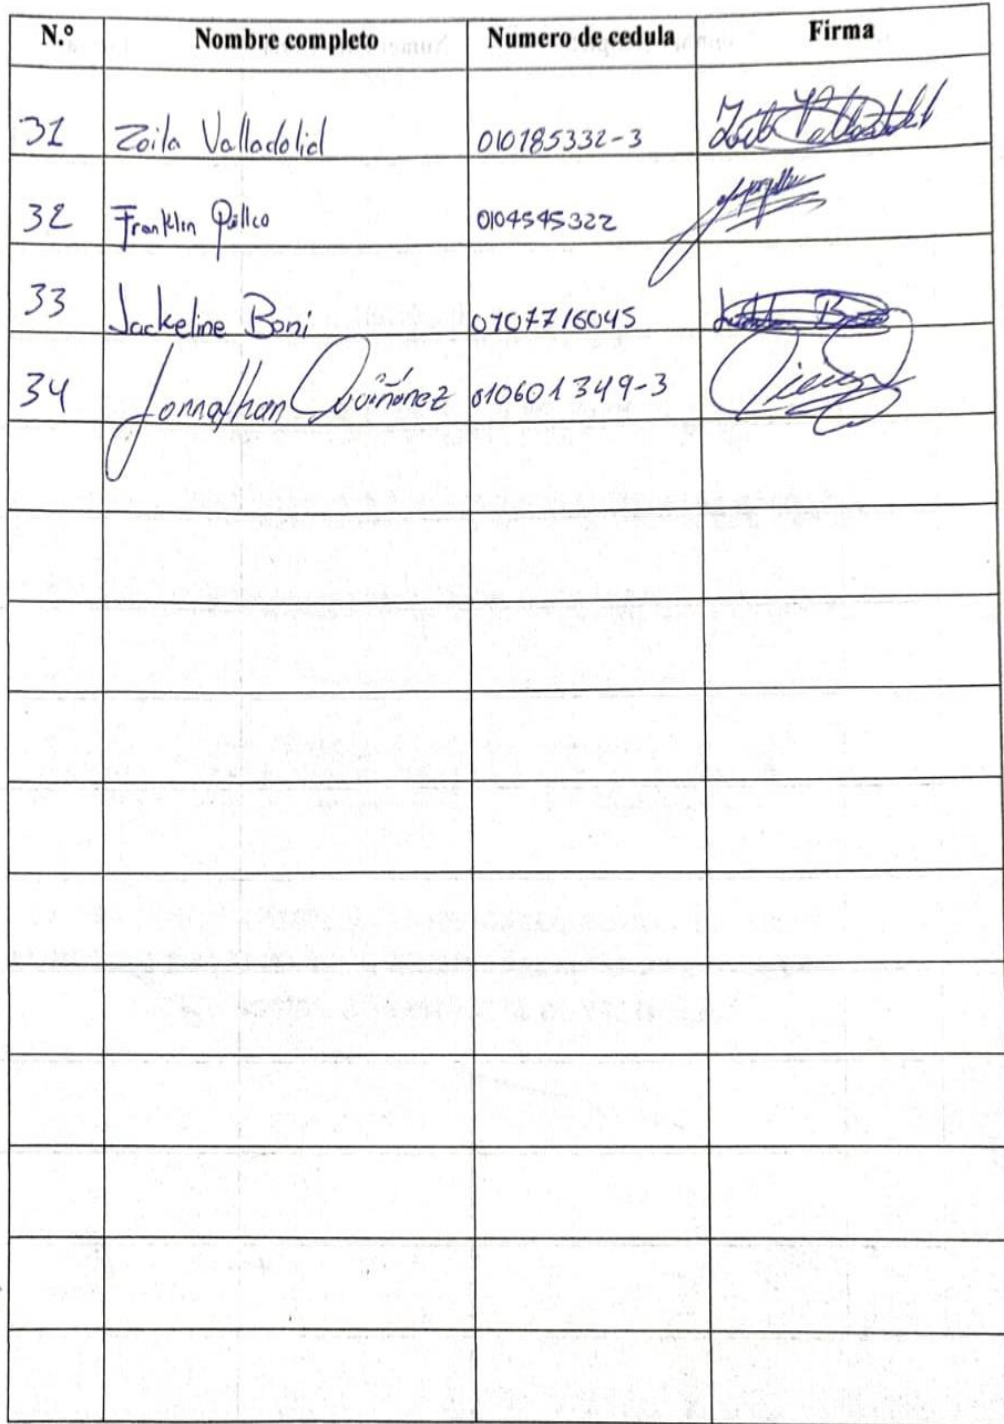 N.º Nombre completo Numero de cedula Firma
31 Zoila Valladolid 010185332-3
32 Franklin Pillco 0104545322
33 Jackeline Boni 0107716045
34 Jonnathan Quiñonez 010601349-3